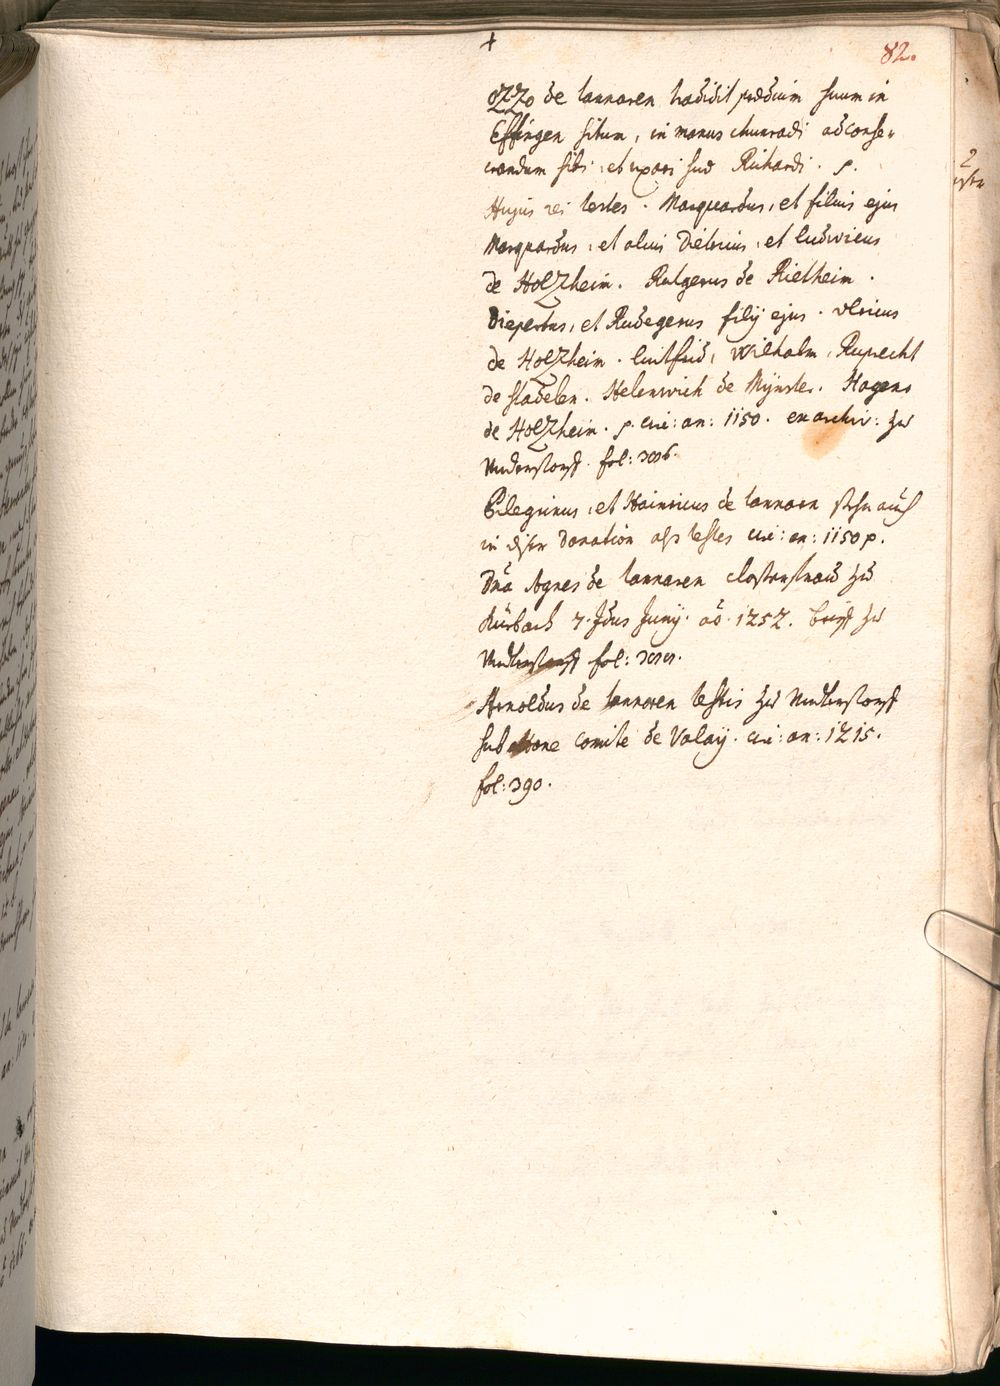 +
82.
OZZo de tannaren tradidit prædium suum in
Effingen situm, in manus chunradi ad conse„
crandum sibi, et uxori suæ Richardi. p.
Hujus rei testes. Marquardus, et filius ejus
Marquardus, et alius Dietricus, et ludwicus
de HolZheim. Rutgerus de Rietheim.
Diepertus, et Rudegerus filij ejus. Vlricus
de HolZheim. luitfrid, Wilhalm, Ruprecht
de stadelen. Helenwich de Mÿnster. Hageno
de HolZheim. p. circ: an: 1150. ex archiv: zu
Understorff. fol: 386.
Pilegrinus, et Hainricus de tannarn stehn auch
in diser Donation alß testes circ: an: 1150 p.
Dña Agnes de tannaren closterfraw zu
Kürbach 7. Jdus Junij. aõ. 1257. brieff zu
Understorff fol: 
Arnoldus de tannaren testis zu Understorff
sub ottone comite de Valaÿ. circ: an: 1215.
fol: 390.